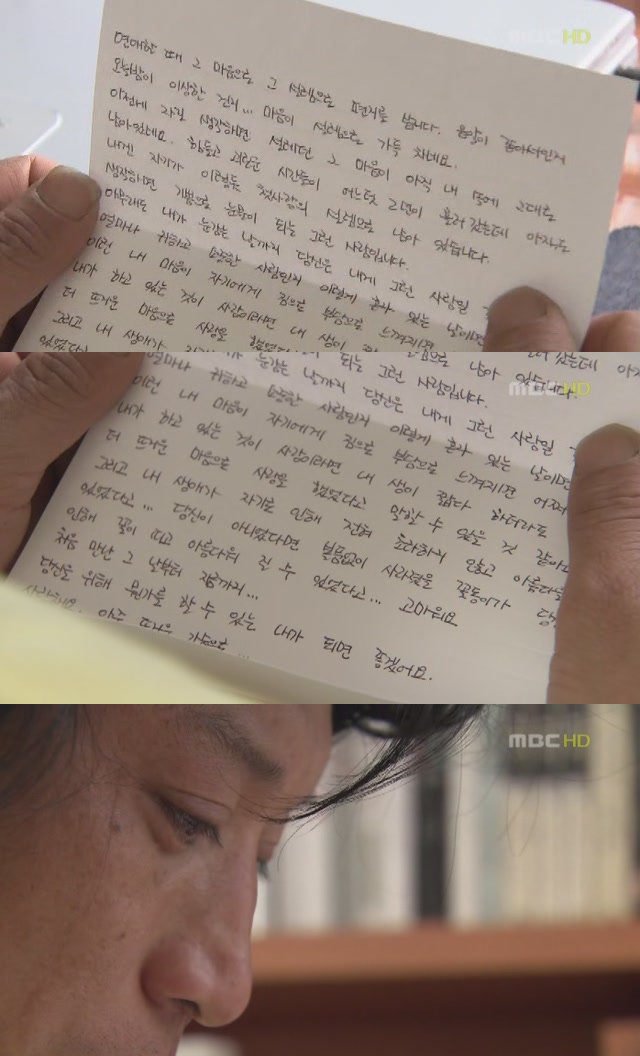 MBC HD
연애할 때 그 마음으로 그 설렘으로 편지를 씁니다. 음악이 좋아서인지
오늘밤이 이상한 건지... 마음이 설렘으로 가득 차네요.
이렇게 자길 생각하면 설레던 그 마음이 아직 내 안에 그대로
남아있네요. 힘들고 괴로운 시간들이 어느덧 2년이 흘러 갔는데 아직도
내겐 자기가 이렇듯 첫사랑의 설렘으로 남아 있습니다.
생각하면 기쁨으로 눈물이 되는 그런 사람입니다.
아무래도 내가 눈감는 날까지 당신은 내게 그런 사람일
얼마나 귀하고 소중한 사람인지 이렇게 혼자 있는 날이면
이런 내 마음이 자기에게 짐으로 부담으로 느껴지면
내가 하고 있는 것이 사랑이라면 내 생이
더 뜨거운 마음으로 사랑을
그리고 내 생애가
MBC HD
흘러 갔는데
되는 그런 사람입니다. 남아 있습니다.
눈감는 날까지 당신은 내게 그런 사람일
얼마나 귀하고 소중한 사람인지 이렇게 혼자 있는 날이면
이런 내 마음이 자기에게 짐으로 부담으로 느껴지면 어쩌
내가 하고 있는 것이 사랑이라면 내 생이 짧다 하더라도
더 뜨거운 마음으로 사랑을 했었다고 말할 수 있을 것 같아요
그리고 내 생애가 자기로 인해 전혀 초라하지 않고 아름다웠
있었다고... 당신이 아니었다면 볼품없이 사라졌을 꽃동이가 당신
인해 꽃이 피고 아름다워 질 수 있었다고... 고마워요
처음 만난 그 날부터 지금까지...
당신을 위해 뭔가를 할 수 있는 내가 되면 좋겠어요.
사랑해요. 아주 뜨거운 가슴으로...
MBC HD